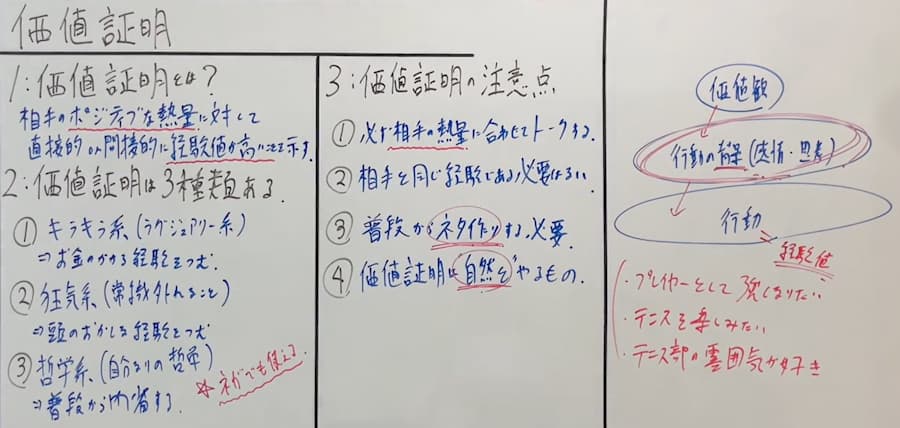 価値証明
1:価値証明とは?
相手のポジティブな熱量に対して
直接的or間接的に経験値が高いことを示す.
2:価値証明は3種類ある.
① キラキラ系(ラグジュアリー系)
⇒お金のかかる経験をつむ.
② 狂気系(常識外れること)
⇒頭のおかしな経験をつむ
③ 哲学系(自分なりの哲学)
⇒普段から内省する.
☆ネガでも使える
3:価値証明の注意点
① 必ず相手の熱量に合わせてトークする.
② 相手と同じ経験である必要はない.
③ 普段からネタ作りする必要.
④ 価値証明は自然とやるもの.
価値観
行動の背景(感情・思考)
行動
経験値
・プレイヤーとして強くなりたい
・テニスを楽しみたい
・テニス部の雰囲気が好き